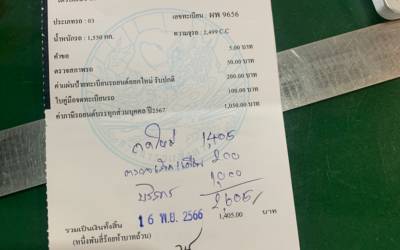 ประเภทรถ : 03 เลขทะเบียน : ผพ 9656
น้ำหนักรถ : 1,550 กก. ความจุรถ : 2,499 C.C
คำขอ 5.00 บาท
ตรวจสภาพรถ 50.00 บาท
ค่าแผ่นป้ายทะเบียนรถยนต์ออกใหม่ รับปกติ 200.00 บาท
ใบคู่มือจดทะเบียนรถ 100.00 บาท
ค่าภาษีรถยนต์บรรทุกส่วนบุคคล ปี2567 1,050.00 บาท
1,405
200
บริการ 1,000
2,605/
รวมเป็นเงินทั้งสิ้น 16 พ.ย. 2566 1,405.00 บาท
(หนึ่งพันสี่ร้อยห้าบาทถ้วน)